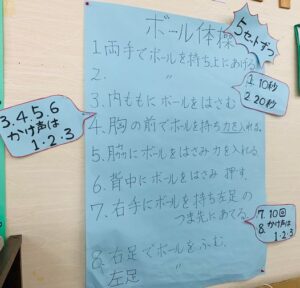 ボール体操
5セットずつ
1.両手でボールを持ち上にあげる
2. 〃
1.10秒
2.20秒
3.内ももにボールをはさむ
3.4.5.6
かけ声は
1・2・3
4.胸の前でボールを持ち力を入れる.
5.脇にボールをはさみ力を入れる
6.背中にボールをはさみ押す.
7.右手にボールを持ち左足の
つま先にあてる.
7.10回
8.かけ声は
1・2・3
8.右足でボールをふむ.
左足 〃